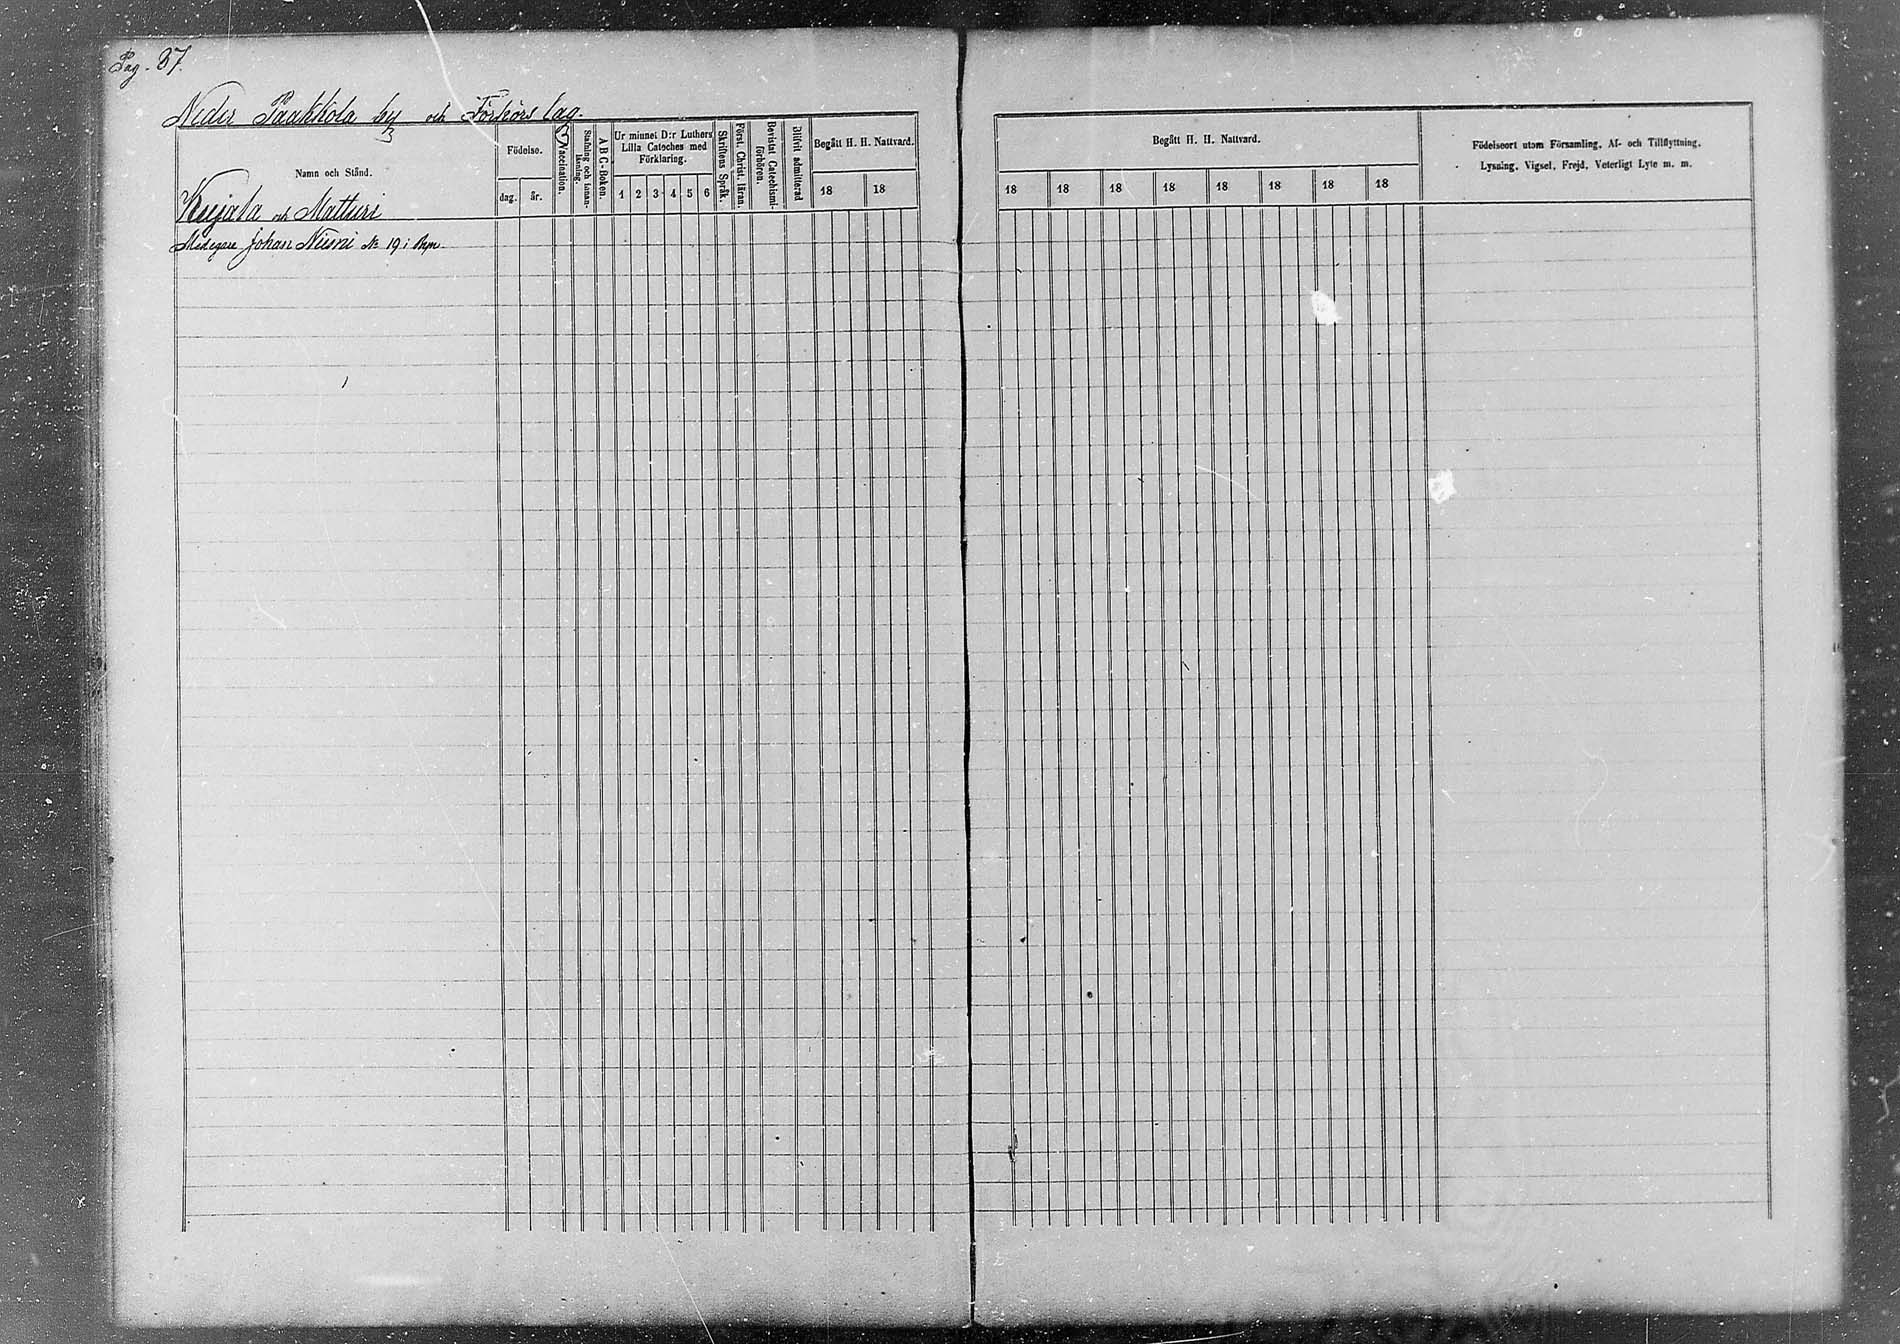 Pag. 37.
Neder Paakkola by och Förhörs lag.
Namn och Stånd.
Födelse.
dag.
år.
Vaccination.
Stafning och innanläsning.
A B C-Boken.
Ur minnet D:r Luthers Lilla Cateches med Förklaring.
1 2 3 4 5 6
Skriftens Språk.
Först. Christ. läran.
Bevistat Catechismiförhören.
Blifvit admitterad
Begått H. H. Nattvard.
18 18
Kujala och Matturi
Johan Niemi № 19 i
Begått H. H. Nattvard.
18 18 18 18 18 18 18 18
Födelseort utom Församling, Af- och Tillflyttning,
Lysning, Vigsel, Frejd, Veterligt Lyte m. m.